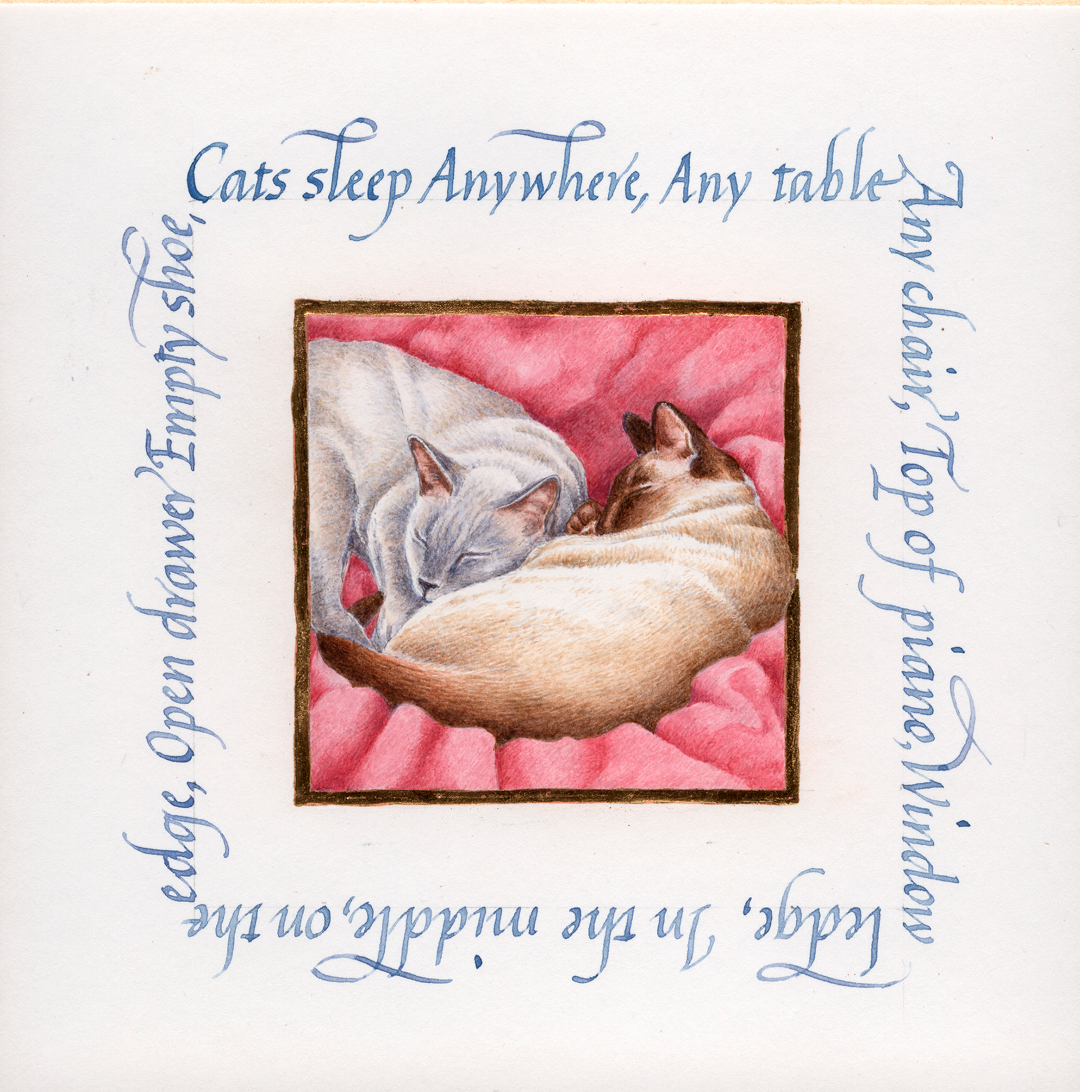 Cats sleep Anywhere, Any table
Any chair, Top of piano, Window
ledge, In the middle, on the
edge, Open drawer Empty shoe,